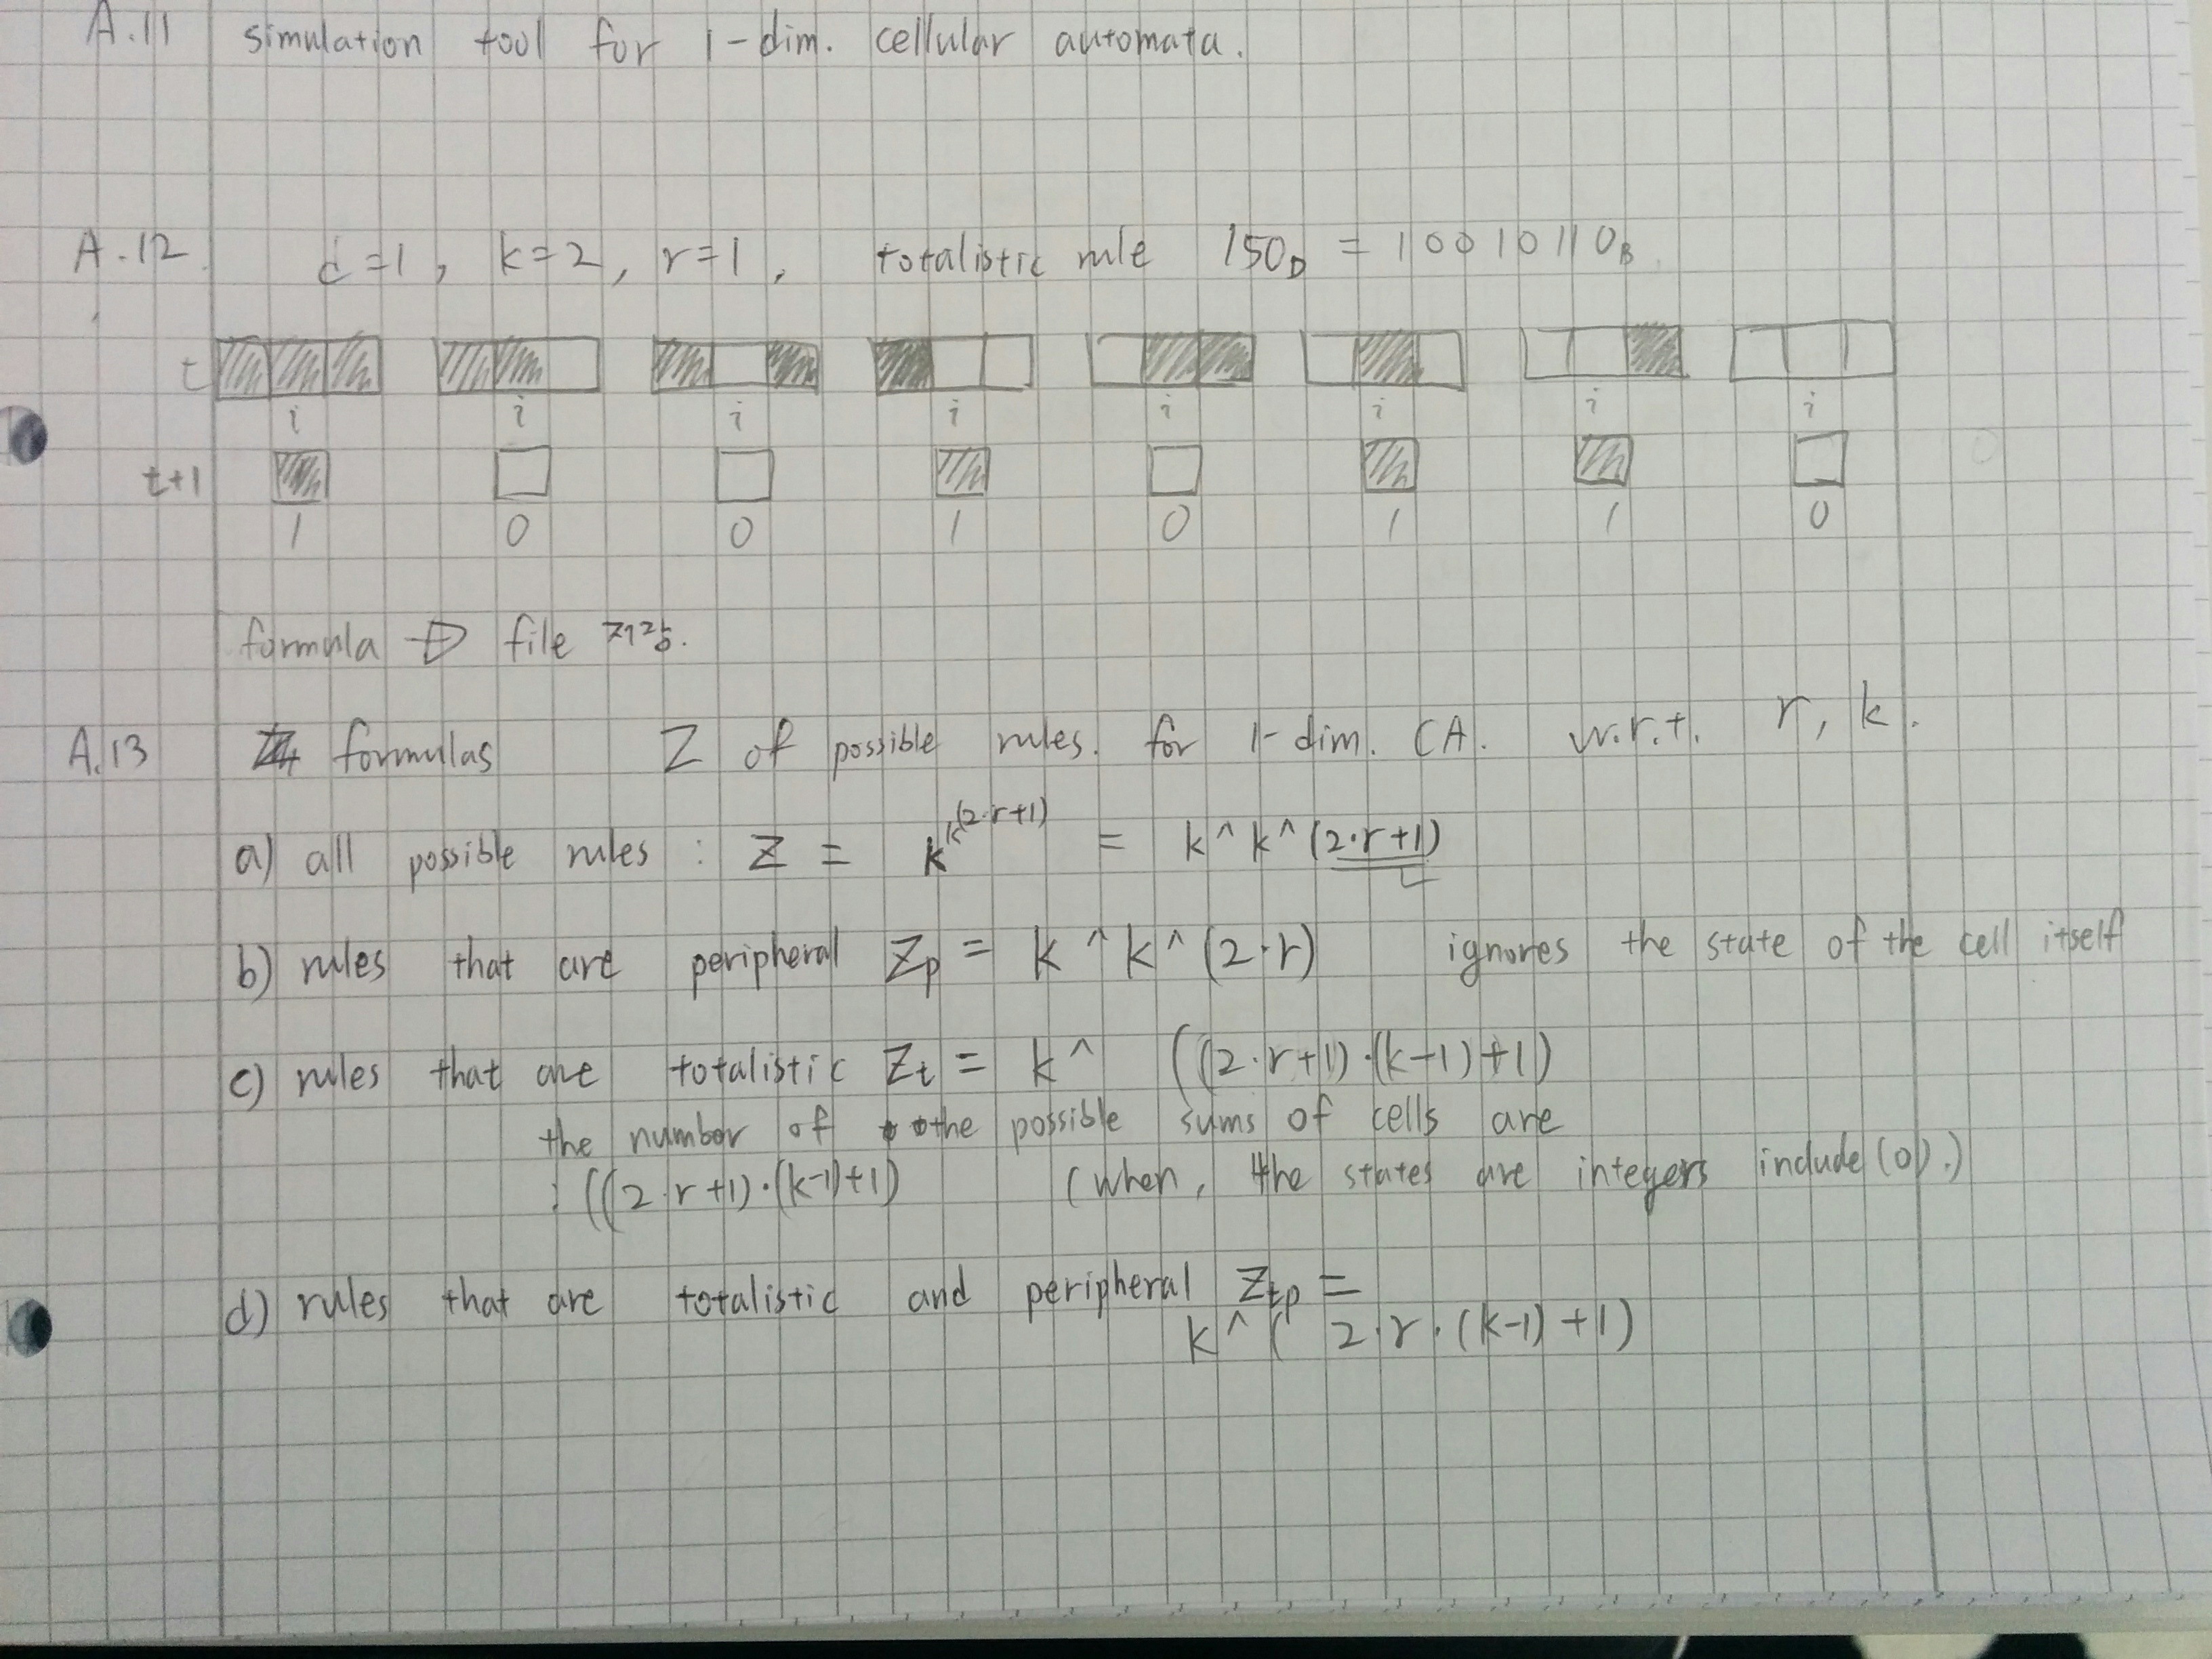 A.11 simulation tool for 1-dim. cellular automata.
A.12. d=1, k=2, r=1, totalistic rule 150D = 10010110B
t
i i i i i i i i
t+1
1 0 0 1 0 1 1 0
formula → file 저장.
A.13 formulas Z of possible rules. for 1-dim. CA. w.r.t. r, k.
a) all possible rules : Z = k^k^(2·r+1) = k^k^(2·r+1)
b) rules that are peripheral Zp = k^k^(2·r) ignores the state of the cell itself
c) rules that are totalistic Zt = k^ ((2·r+1)·(k-1)+1)
the number of the possible sums of cells are
: ((2·r+1)·(k-1)+1) (when, the states are integers include(0).)
d) rules that are totalistic and peripheral Ztp =
k^( 2·r·(k-1)+1)